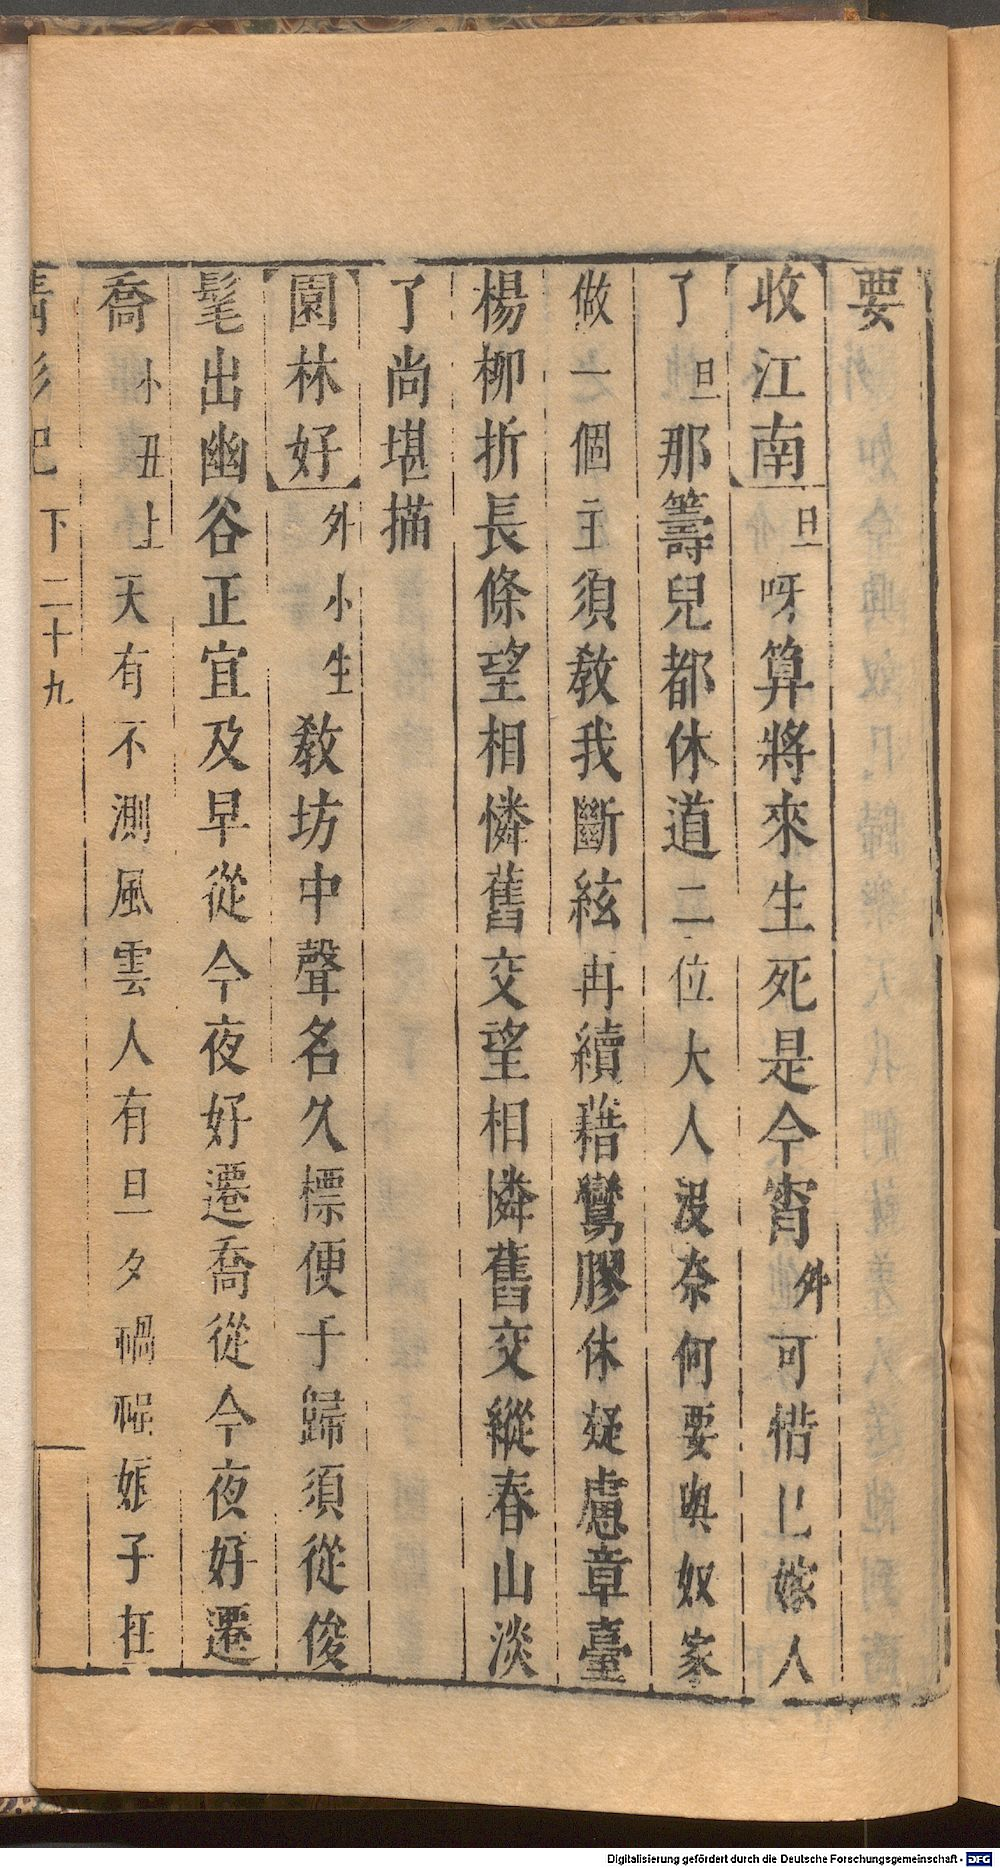 要
收江南 旦 呀算將來生死是今宵 外 可惜上嫁人
了 旦 那籌兒都休道二位大人沒奈何要與奴家
做一個主須教我斷絃再續藉鸞膠休疑慮章臺
楊柳折長條望相憐舊交望相憐舊交縱春山淡
了尚堪描
園林好 外 小生 教坊中聲名久標便于歸須從俊
髦出幽谷正宜及早從今夜好遷喬從今夜好遷
喬 小丑上 天有不測風雲人有旦夕禍福娘子在
下 二十九
Digitalisierung gefördert durch die Deutsche Forschungsgemeinschaft - DFG